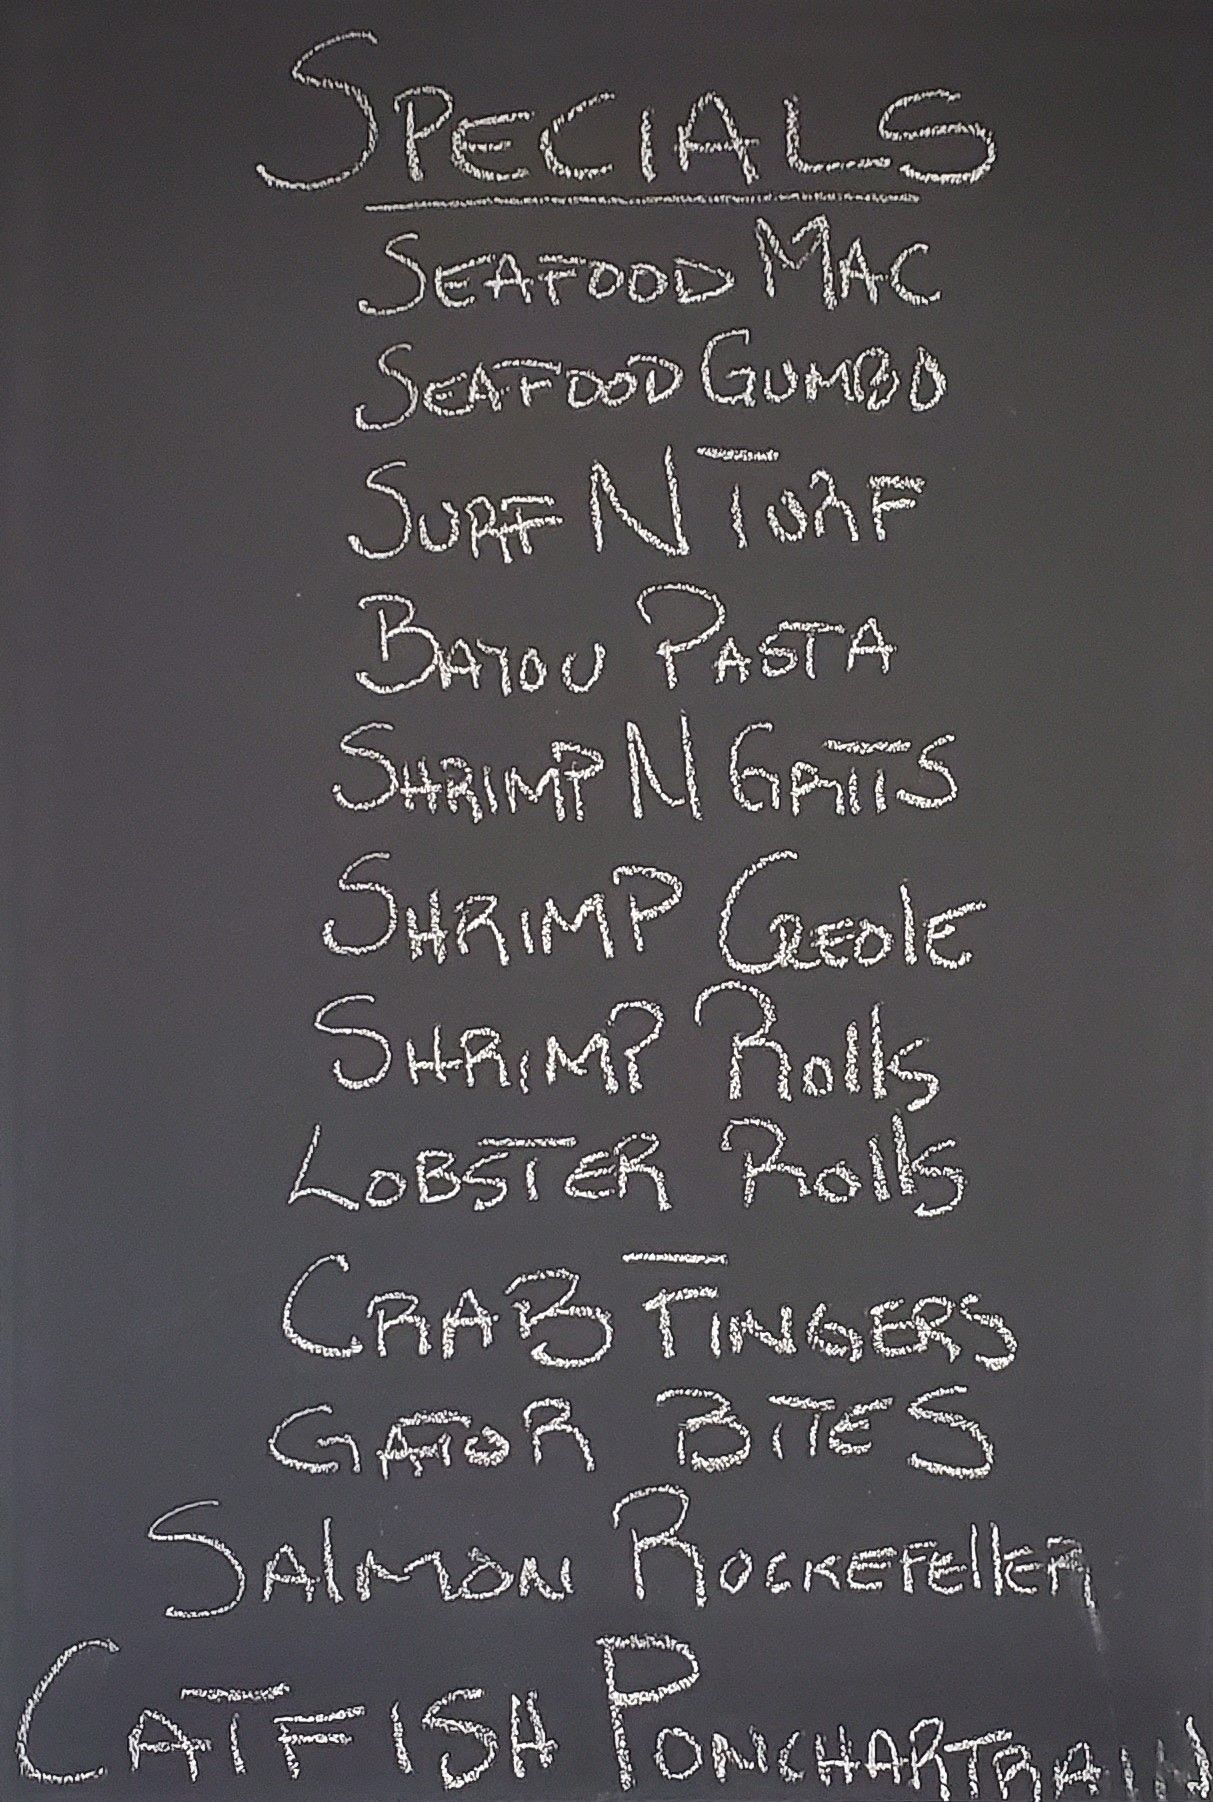 SPECIALS
SEAFOOD MAC
SEAFOOD GUMBO
SURF N TURF
BAYOU PASTA
SHRIMP N GRITS
SHRIMP CREOlE
SHRIMP ROllS
LOBSTER ROllS
CRAB FINGERS
GATOR BITES
SAlMON ROCKEFEllER
CATFISH PONCHARTRAIN